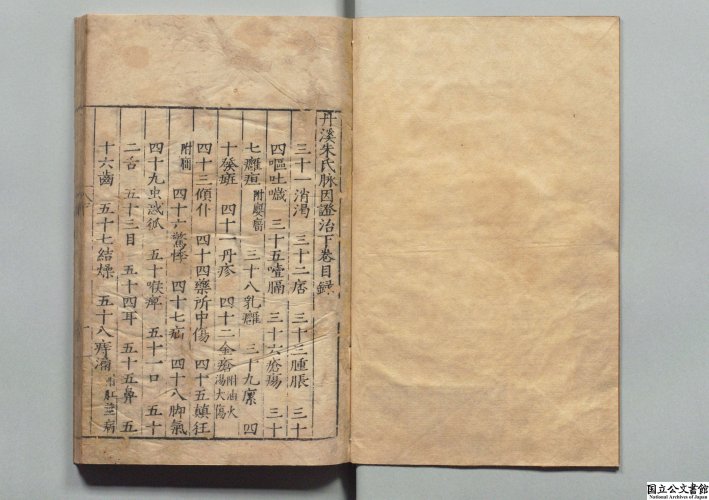 丹溪朱氏脉因證治下卷目錄
三十一消渴 三十二痞 三十三腫脹 三十
四嘔吐噦 三十五噎膈 三十六瘡瘍 三十
七癰疽 附 三十八乳癰 三十九瘰 四
十發斑 四十一丹疹 四十二金瘡 附油火湯火傷
四十三傾仆 四十四藥所中傷 四十五癲狂
附癇 四十六驚悸 四十七疝 四十八脚氣
四十九虫 五十喉痺 五十一口 五十
二舌 五十三目 五十四耳 五十五鼻 五
十六齒 五十七結燥 五十八痔漏 病
国立公文書館
National Archives of Japan